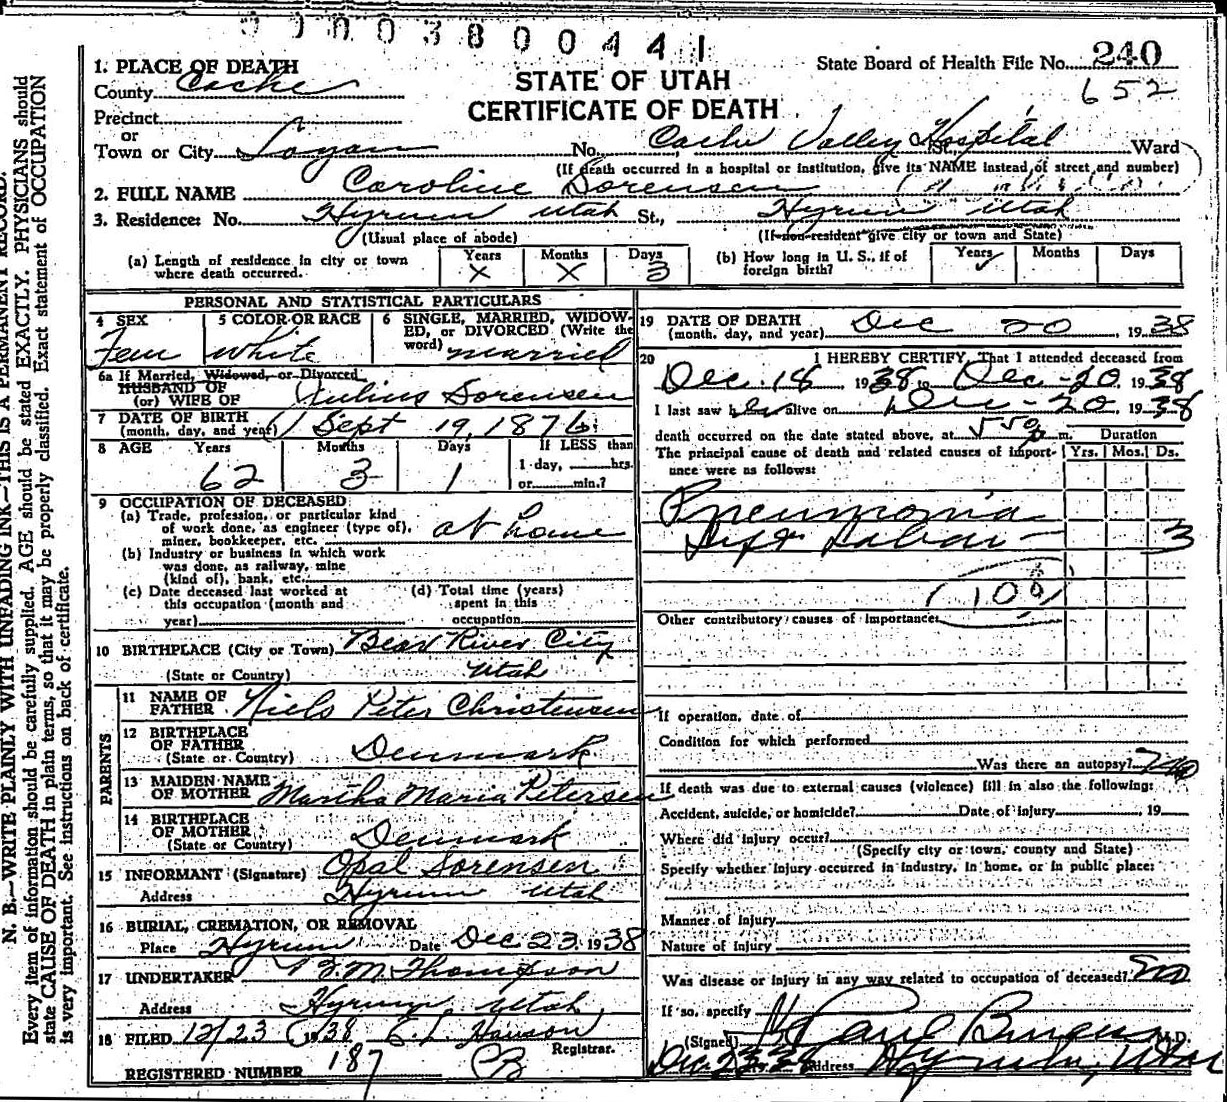 0003800441
1. PLACE OF DEATH
County Cache
STATE OF UTAH
CERTIFICATE OF DEATH
State Board of Health File No. 240
652
Precinct
or
Town or City Logan No. Cache Valley Hospital St., Ward
(If death occurred in a hospital or institution, give its NAME instead of street and number)
2. FULL NAME Caroline Sorensen
3. Residence: No. Hyrum Utah St., Hyrum Utah
(Usual place of abode) (If non-resident give city or town and State)
(a) Length of residence in city or town where death occurred. Years X Months X Days 3
(b) How long in U. S., if of foreign birth? Years ✓ Months Days
PERSONAL AND STATISTICAL PARTICULARS
4 SEX Fem
5 COLOR OR RACE White
6 SINGLE, MARRIED, WIDOWED, or DIVORCED (Write the word) married
6a If Married, Widowed, or Divorced
HUSBAND OF
(or) WIFE OF Julius Sorensen
7 DATE OF BIRTH
(month, day, and year) Sept 19, 1876
8 AGE Years 62 Months 3 Days 1 If LESS than 1 day, hrs. or min.?
9 OCCUPATION OF DECEASED
(a) Trade, profession, or particular kind of work done, as engineer (type of), miner, bookkeeper, etc. at home
(b) Industry or business in which work was done, as railway, mine (kind of), bank, etc.
(c) Date deceased last worked at this occupation (month and year)
(d) Total time (years) spent in this occupation
10 BIRTHPLACE (City or Town) Bear River City
(State or Country) Utah
PARENTS
11 NAME OF FATHER Niels Peter Christensen
12 BIRTHPLACE OF FATHER
(State or Country) Denmark
13 MAIDEN NAME OF MOTHER Martha Maria Petersen
14 BIRTHPLACE OF MOTHER
(State or Country) Denmark
15 INFORMANT (Signature) Opal Sorensen
Address Hyrum Utah
16 BURIAL, CREMATION, OR REMOVAL
Place Hyrum Date Dec 23, 1938
17 UNDERTAKER M. Thompson
Address Hyrum Utah
18 FILED 12/23 1938 Hanson
Registrar.
REGISTERED NUMBER 187
19 DATE OF DEATH
(month, day, and year) Dec 20 1938
20 I HEREBY CERTIFY, That I attended deceased from
Dec. 18 1938 to Dec-20 1938
I last saw her alive on Dec-20 1938
death occurred on the date stated above, at 550 p m. Duration
The principal cause of death and related causes of importance were as follows: Yrs. Mos. Ds.
Pneumonia
Left Lobar 3
Other contributory causes of importance:
If operation, date of
Condition for which performed
Was there an autopsy? no
If death was due to external causes (violence) fill in also the following:
Accident, suicide, or homicide? Date of injury , 19
Where did injury occur?
(Specify city or town, county and State)
Specify whether injury occurred in industry, in home, or in public place:
Manner of injury
Nature of injury
Was disease or injury in any way related to occupation of deceased? no
If so, specify
(Signed) M.D.
Dec. 23 38 Address Hyrum, Utah
N. B.—WRITE PLAINLY WITH UNFADING INK—THIS IS A PERMANENT RECORD.
Every item of information should be carefully supplied. AGE should be stated EXACTLY. PHYSICIANS should
state CAUSE OF DEATH in plain terms, so that it may be properly classified. Exact statement of OCCUPATION
is very important. See instructions on back of certificate.